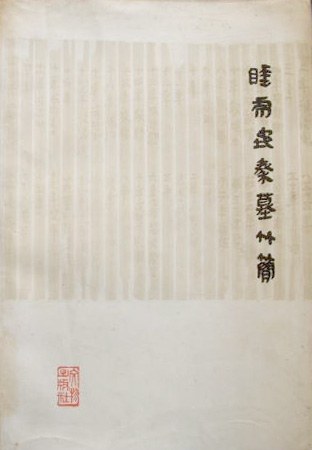 睡虎地秦墓竹簡
文物出版社